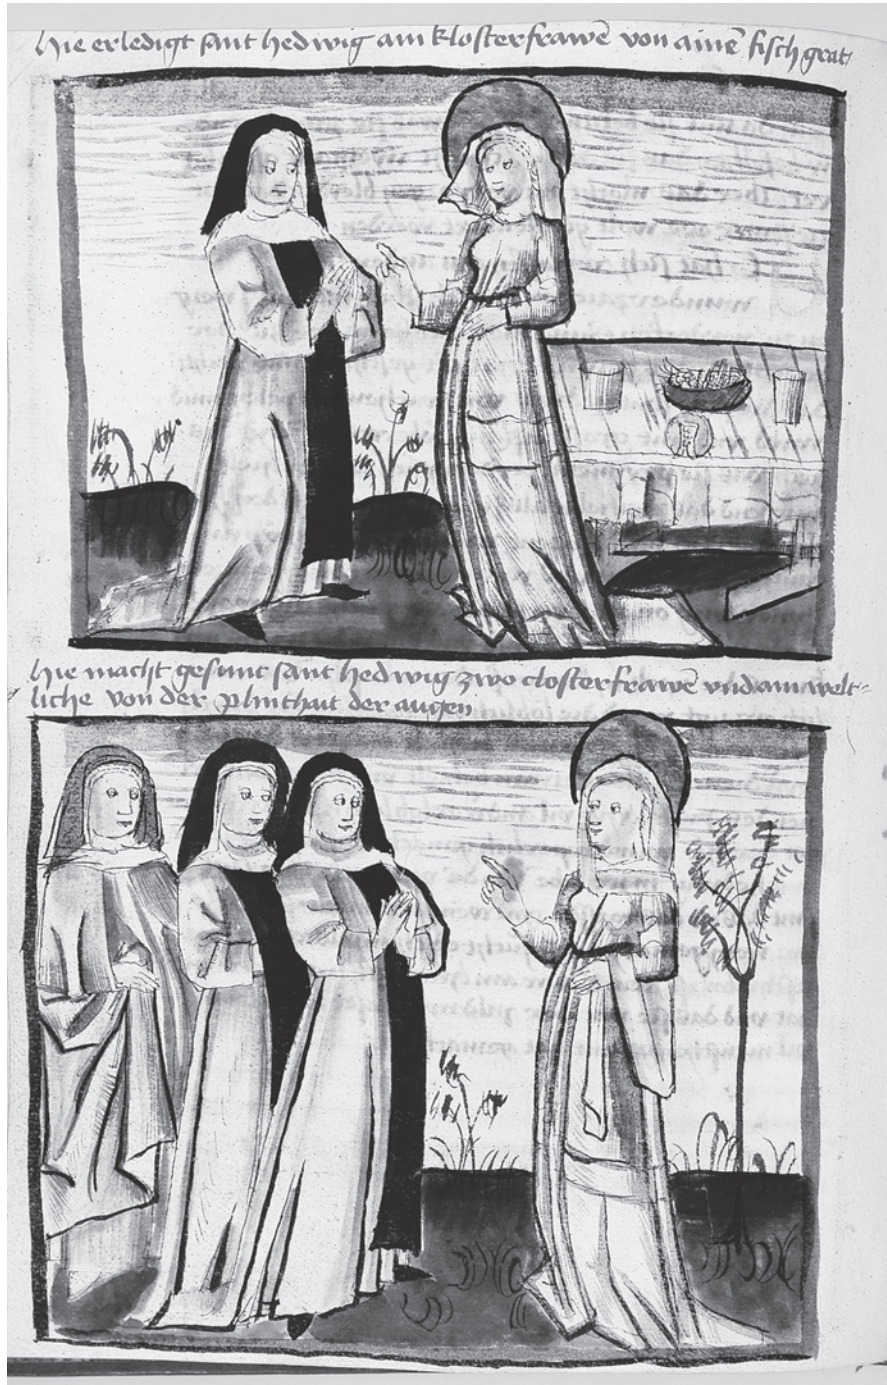 hie erledigt sant hedwig ain klosterfrawē von ainē fisch grat
hie macht gesunt sant hedwig zwo closterfrawē und ain welt-
liche von der plinthait der augen